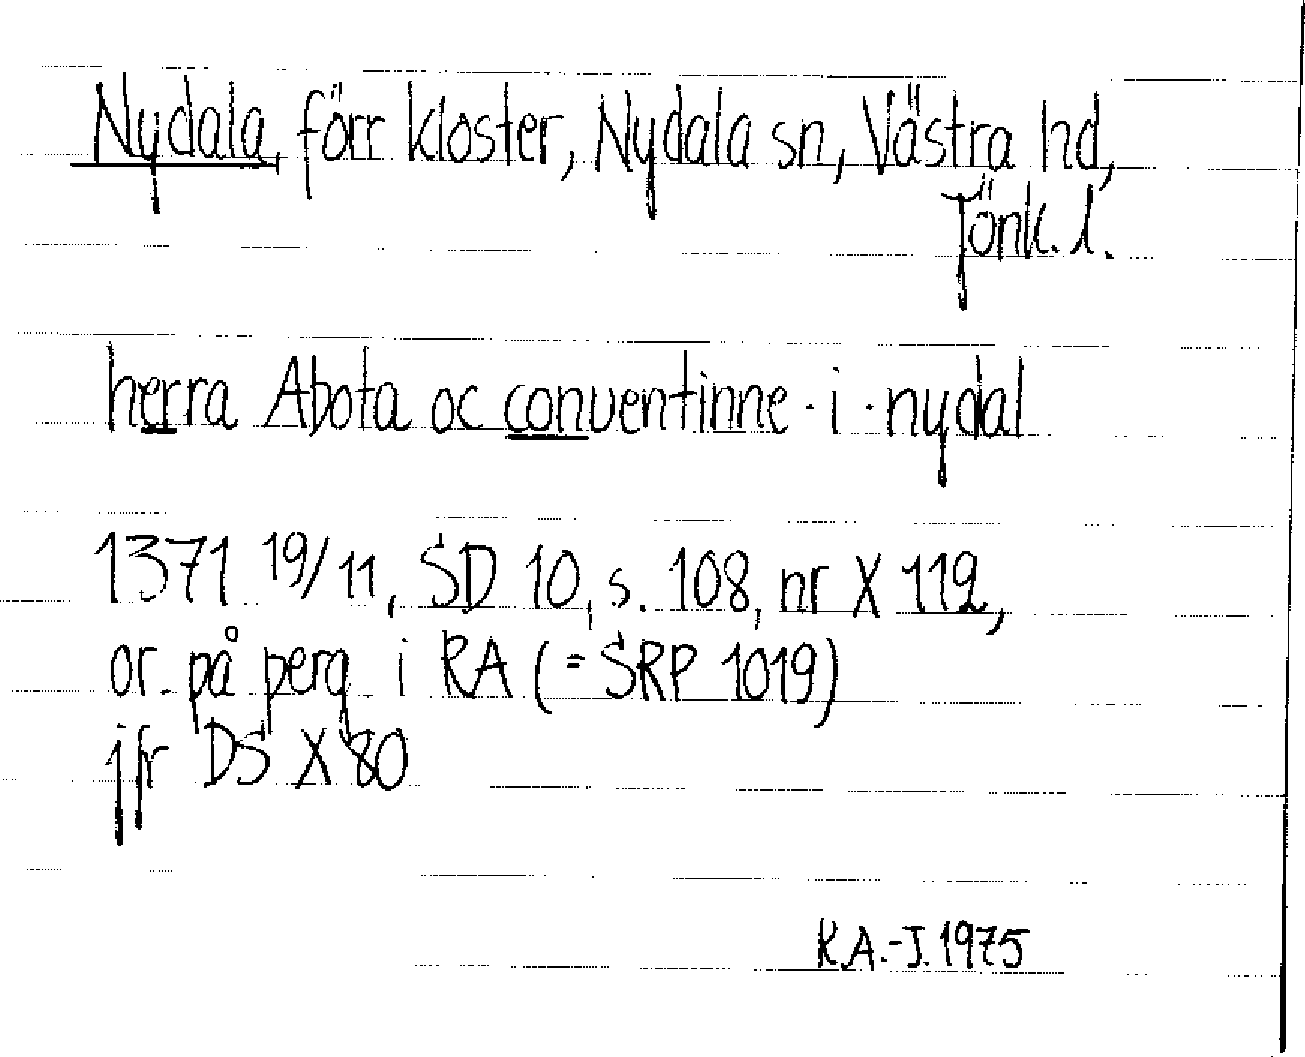 Nydala, förr kloster, Nydala sn, Västra hd,
Jönk. l.
herra Abota oc conuentinne · i · nydal
1371 19/11, SD 10, s. 108, nr X 112,
or. på perg. i RA (= SRP 1019)
jfr DS X 80
K.A.-J. 1975